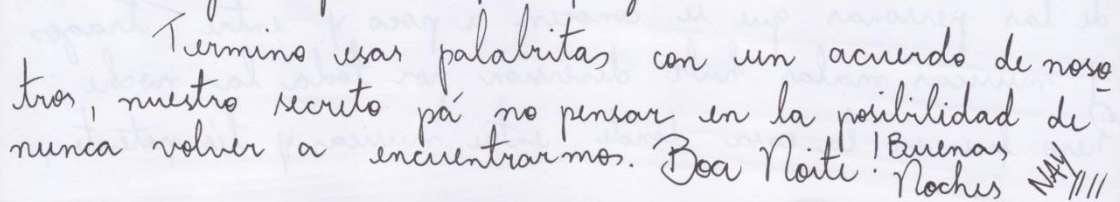 Termino esas palabritas con un acuerdo de noso
tros, nuestro secreto pá no pensar en la posibilidad de
nunca volver a encuentrarmos. Boa Noite! ¡Buenas
Noches NAY